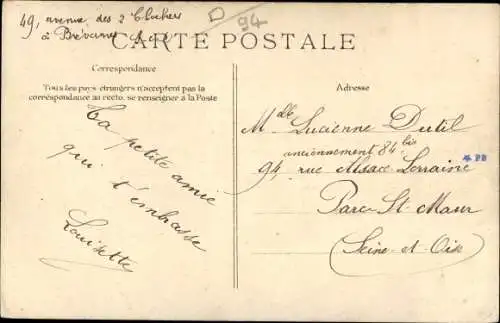 49, avenue des 2 Clochers
à Brévannes S-O
94
CARTE POSTALE
Correspondance
Tous les pays étrangers n'acceptent pas la
correspondance au recto, se renseigner à la Poste
Ta petite amie
qui t'embrasse
Louisette
Adresse
Mlle Lucienne Dutil
anciennement 84 bis
94 rue Alsace-Lorraine
Parc-St-Maur
Seine-et-Oise